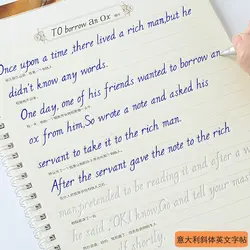 TO borrow an Ox
Once upon a time, there lived a rich man, but he
didn't know any words.
One day, one of his friends wanted to borrow an
ox from him, So wrote a note and asked his
servant to take it to the rich man.
After the servant gave the note to the rich
man, pretended to be reading it and after a
he said, "OK, I know. Go and tell your mas
shortly.
意大利斜体英文字帖